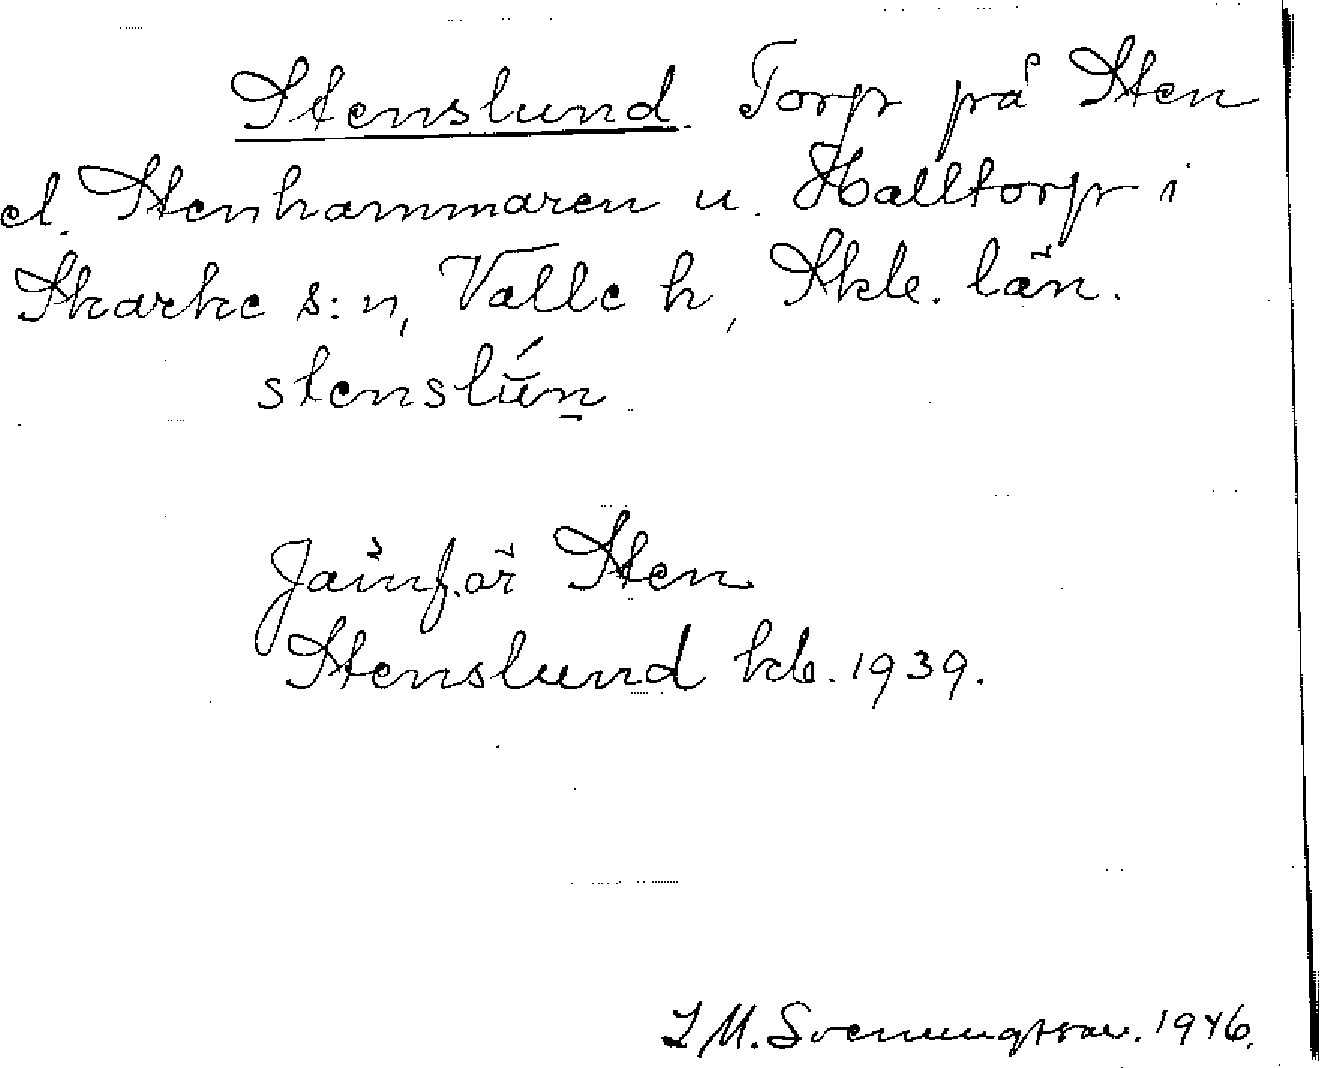 Stenslund. Torp på Sten
el. Stenhammaren u. Halltorp i
Skarke s:n, Valle h, Skb. län.
stenslún
Jämför Sten
Stenslund kb. 1939.
I M. Svenungsson. 1946.